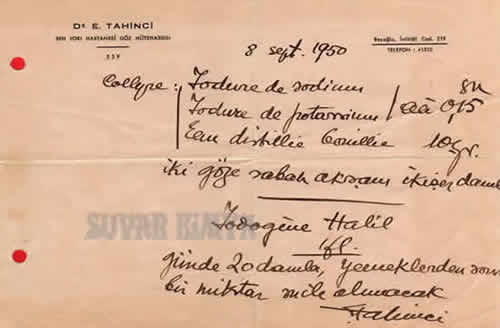 Dr. E. TAHİNCİ
SEN JORJ HASTAHANESİ GÖZ MÜTEHASSISI
Beyoğlu, İstiklâl Cad. 259
TELEFON : 41532
8 sept. 1950
Collyre : Iodure de sodium
Iodure de potassium āā 0,15
Eau distillée bouillie 10 gr.
iki göze sabah akşam ikişer damla
SUVAR KIMYA
Iodogène Halil
1 fl.
günde 20 damla, yemeklerden sonra
bir miktar sütle alınacak
Tahinci